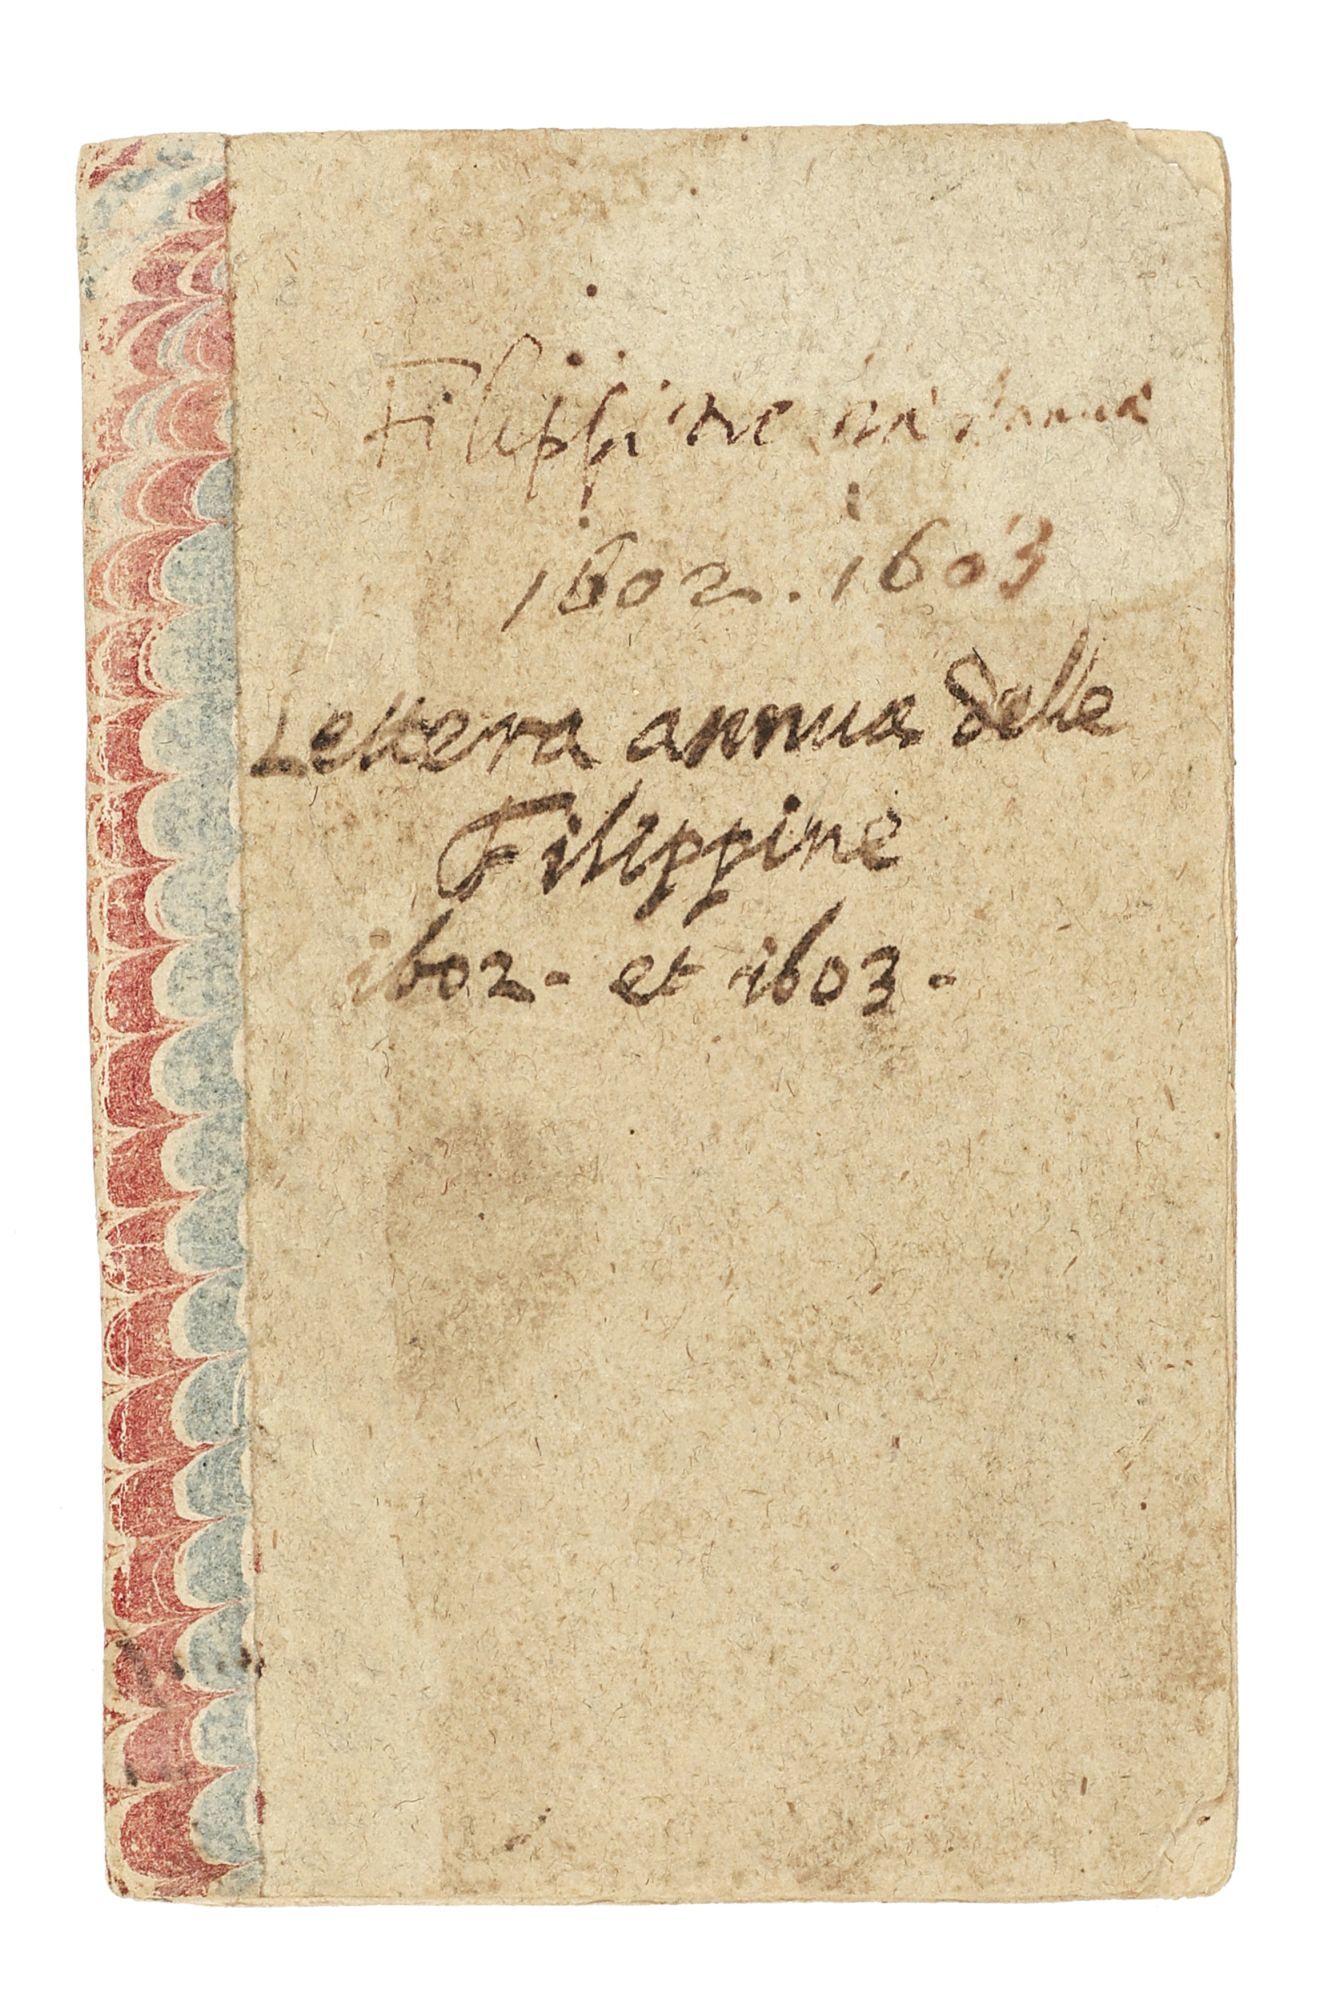 Filippine
1602. 1603
Lettera annua delle
Filippine
1602 - et 1603 -